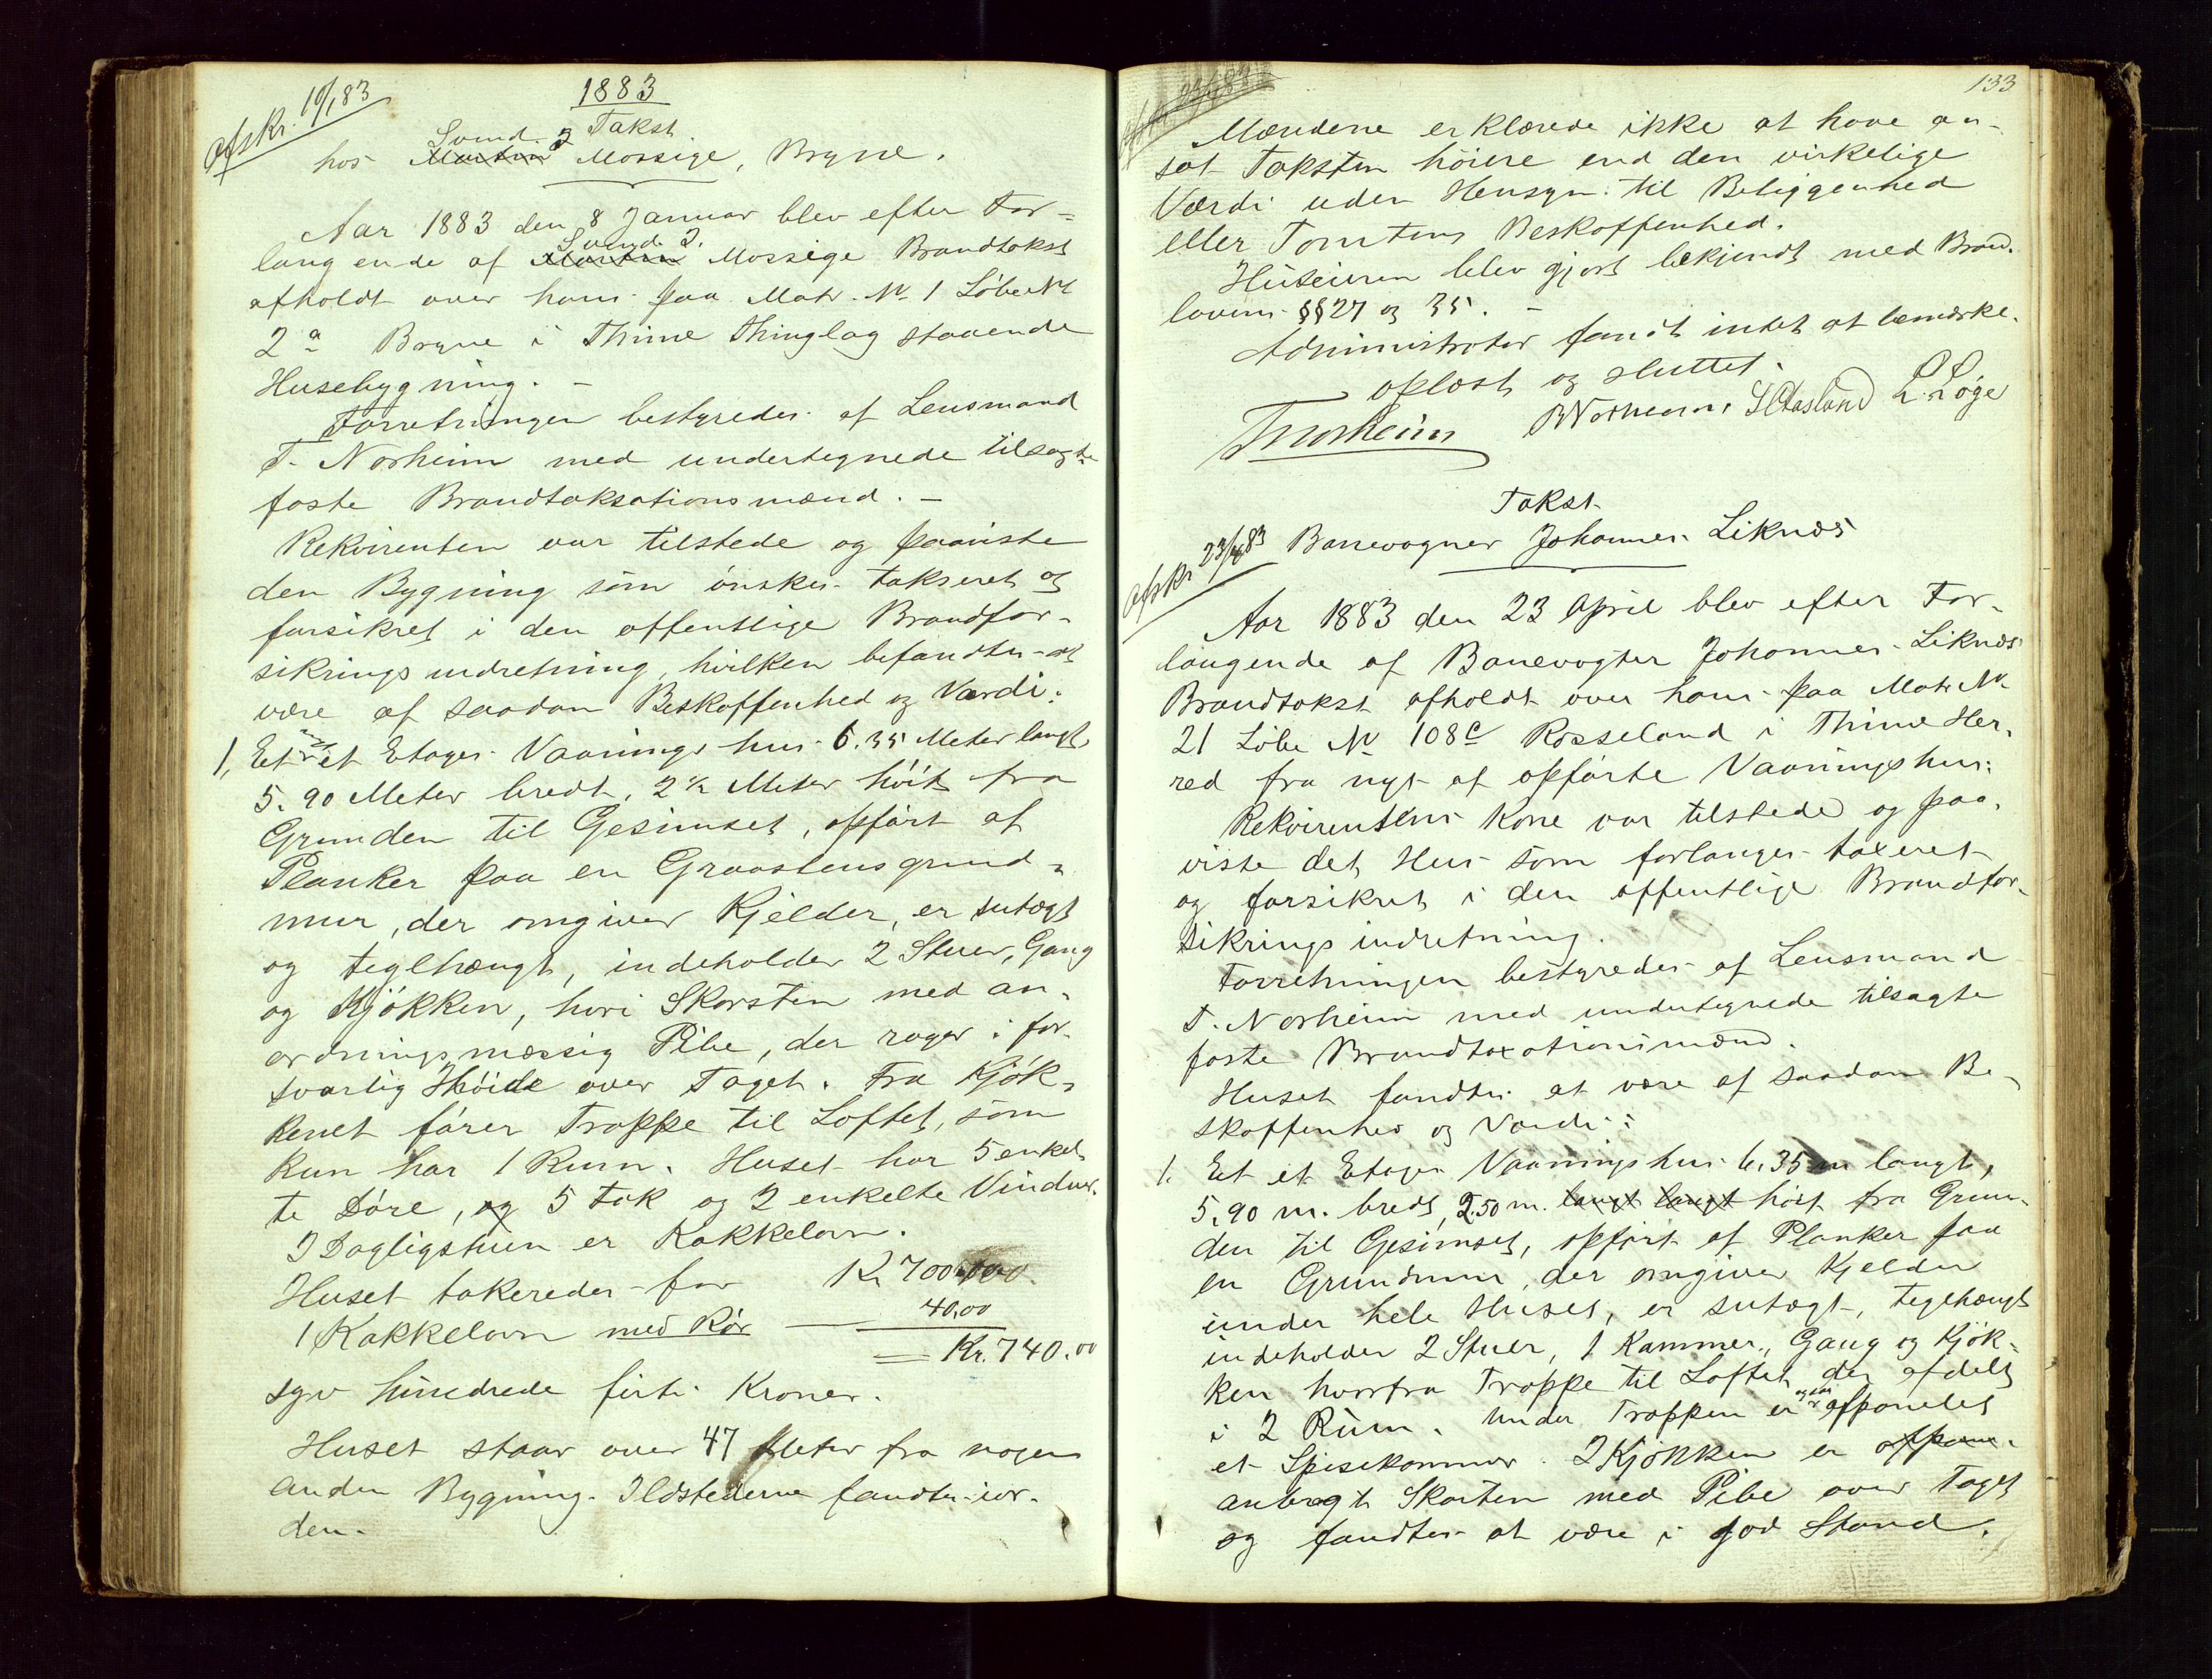 afskr. 10/1 83
1883
Takst
hos Svend J. Mossige, Bryne.
Aar 1883 den 8 Januar blev efter For-
langende af Svend J. Mossige Brandtakst
afholdt over hans paa Matr. № 1 Løbe №
2a Bryne i Thime Thinglag staaende
Husebygning. -
Forretningen bestyredes af Lensmand
T. Norheim med undertegnede tilsagte
faste Brandtaksationsmænd. -
Rekvirenten var tilstede og paaviste
den Bygning som ønskes takseret og
forsikret i den offentlige Brandfor-
sikringsindretning, hvilken befandtes at
være af saadan Beskaffenhed og Værdi:
1, Et nyt et Etages Vaaningshus 6.35 Meter langt
5.90 Meter bredt, 2½ Meter høit fra
Grunden til Gesimset, opført af
Planker paa en Graastensgrund-
mur, der omgiver Kjelder, er sutægt
og teglhængt, indeholder 2 Stuer, Gang
og Kjøkken, hvori Skorsten med an-
ordningsmæssig Pibe, der rager i for-
svarlig Høide over Taget. Fra Kjøk-
kenet fører Trappe til Loftet, som
kun har 1 Rum. Huset har 5 enkel-
te Døre, og 5 Fak og 2 enkelte Vinduer.
I Dagligstuen er Kakkelovn.
Huset takseredes for Kr 700.00
1 Kakkelovn med Rør — 40.00
= Kr. 740.00
syv hundrede førti Kroner.
Huset staar over 47 Meter fra nogen
anden Bygning. Ildstederne fandtes i or-
den.
133
Mændene erklærede ikke at have an-
sat Taksten høiere end den virkelige
Værdi uden Hensyn til Beliggenhed
eller Tomtens Beskaffenhed.
Huseieren blev gjort bekjendt med Brand-
lovens §§ 27 og 35. -
Administrator fandt intet at bemærke.
Oplæst og sluttet.
TNorheim BNorheim, S Aasland L. Løge
Takst
afskr 23/4 83 Banevogter Johannes Liknæs
Aar 1883 den 23 April blev efter For-
langende af Banevogter Johannes Liknæs
Brandtakst afholdt over hans paa Matr №
21 Løbe № 108c Rosseland i Thime Her-
red fra nyt af opførte Vaaningshus.
Rekvirentens Kone var tilstede og paa-
viste det Hus som forlanges taxeret
og forsikret i den offentlige Brandfor-
sikringsindretning.
Forretningen bestyredes af Lensmand
T. Norheim med undertegnede tilsagte
faste Brandtaxationsmænd.
Huset fandtes at være af saadan Be-
skaffenhed og Værdi:
1. Et et Etages Vaaningshus 6.35 m langt,
5.90 m. bredt, 2.50 m. langt langt høit fra Grun-
den til Gesimset, opført af Planker paa
en Grundmur, der omgiver Kjelder
under hele Huset, er sutægt, teglhængt
indeholder 2 Stuer, 1 Kammer, Gang og Kjøk-
ken hvorfra Trappe til Loftet der afdelt
i 2 Rum. Under Trappen er ogsaa afpanelet
et Spisekammer. I Kjøkken er afpane-
anbragt Skorsten med Pibe over Taget
og fandtes at være i god Stand.